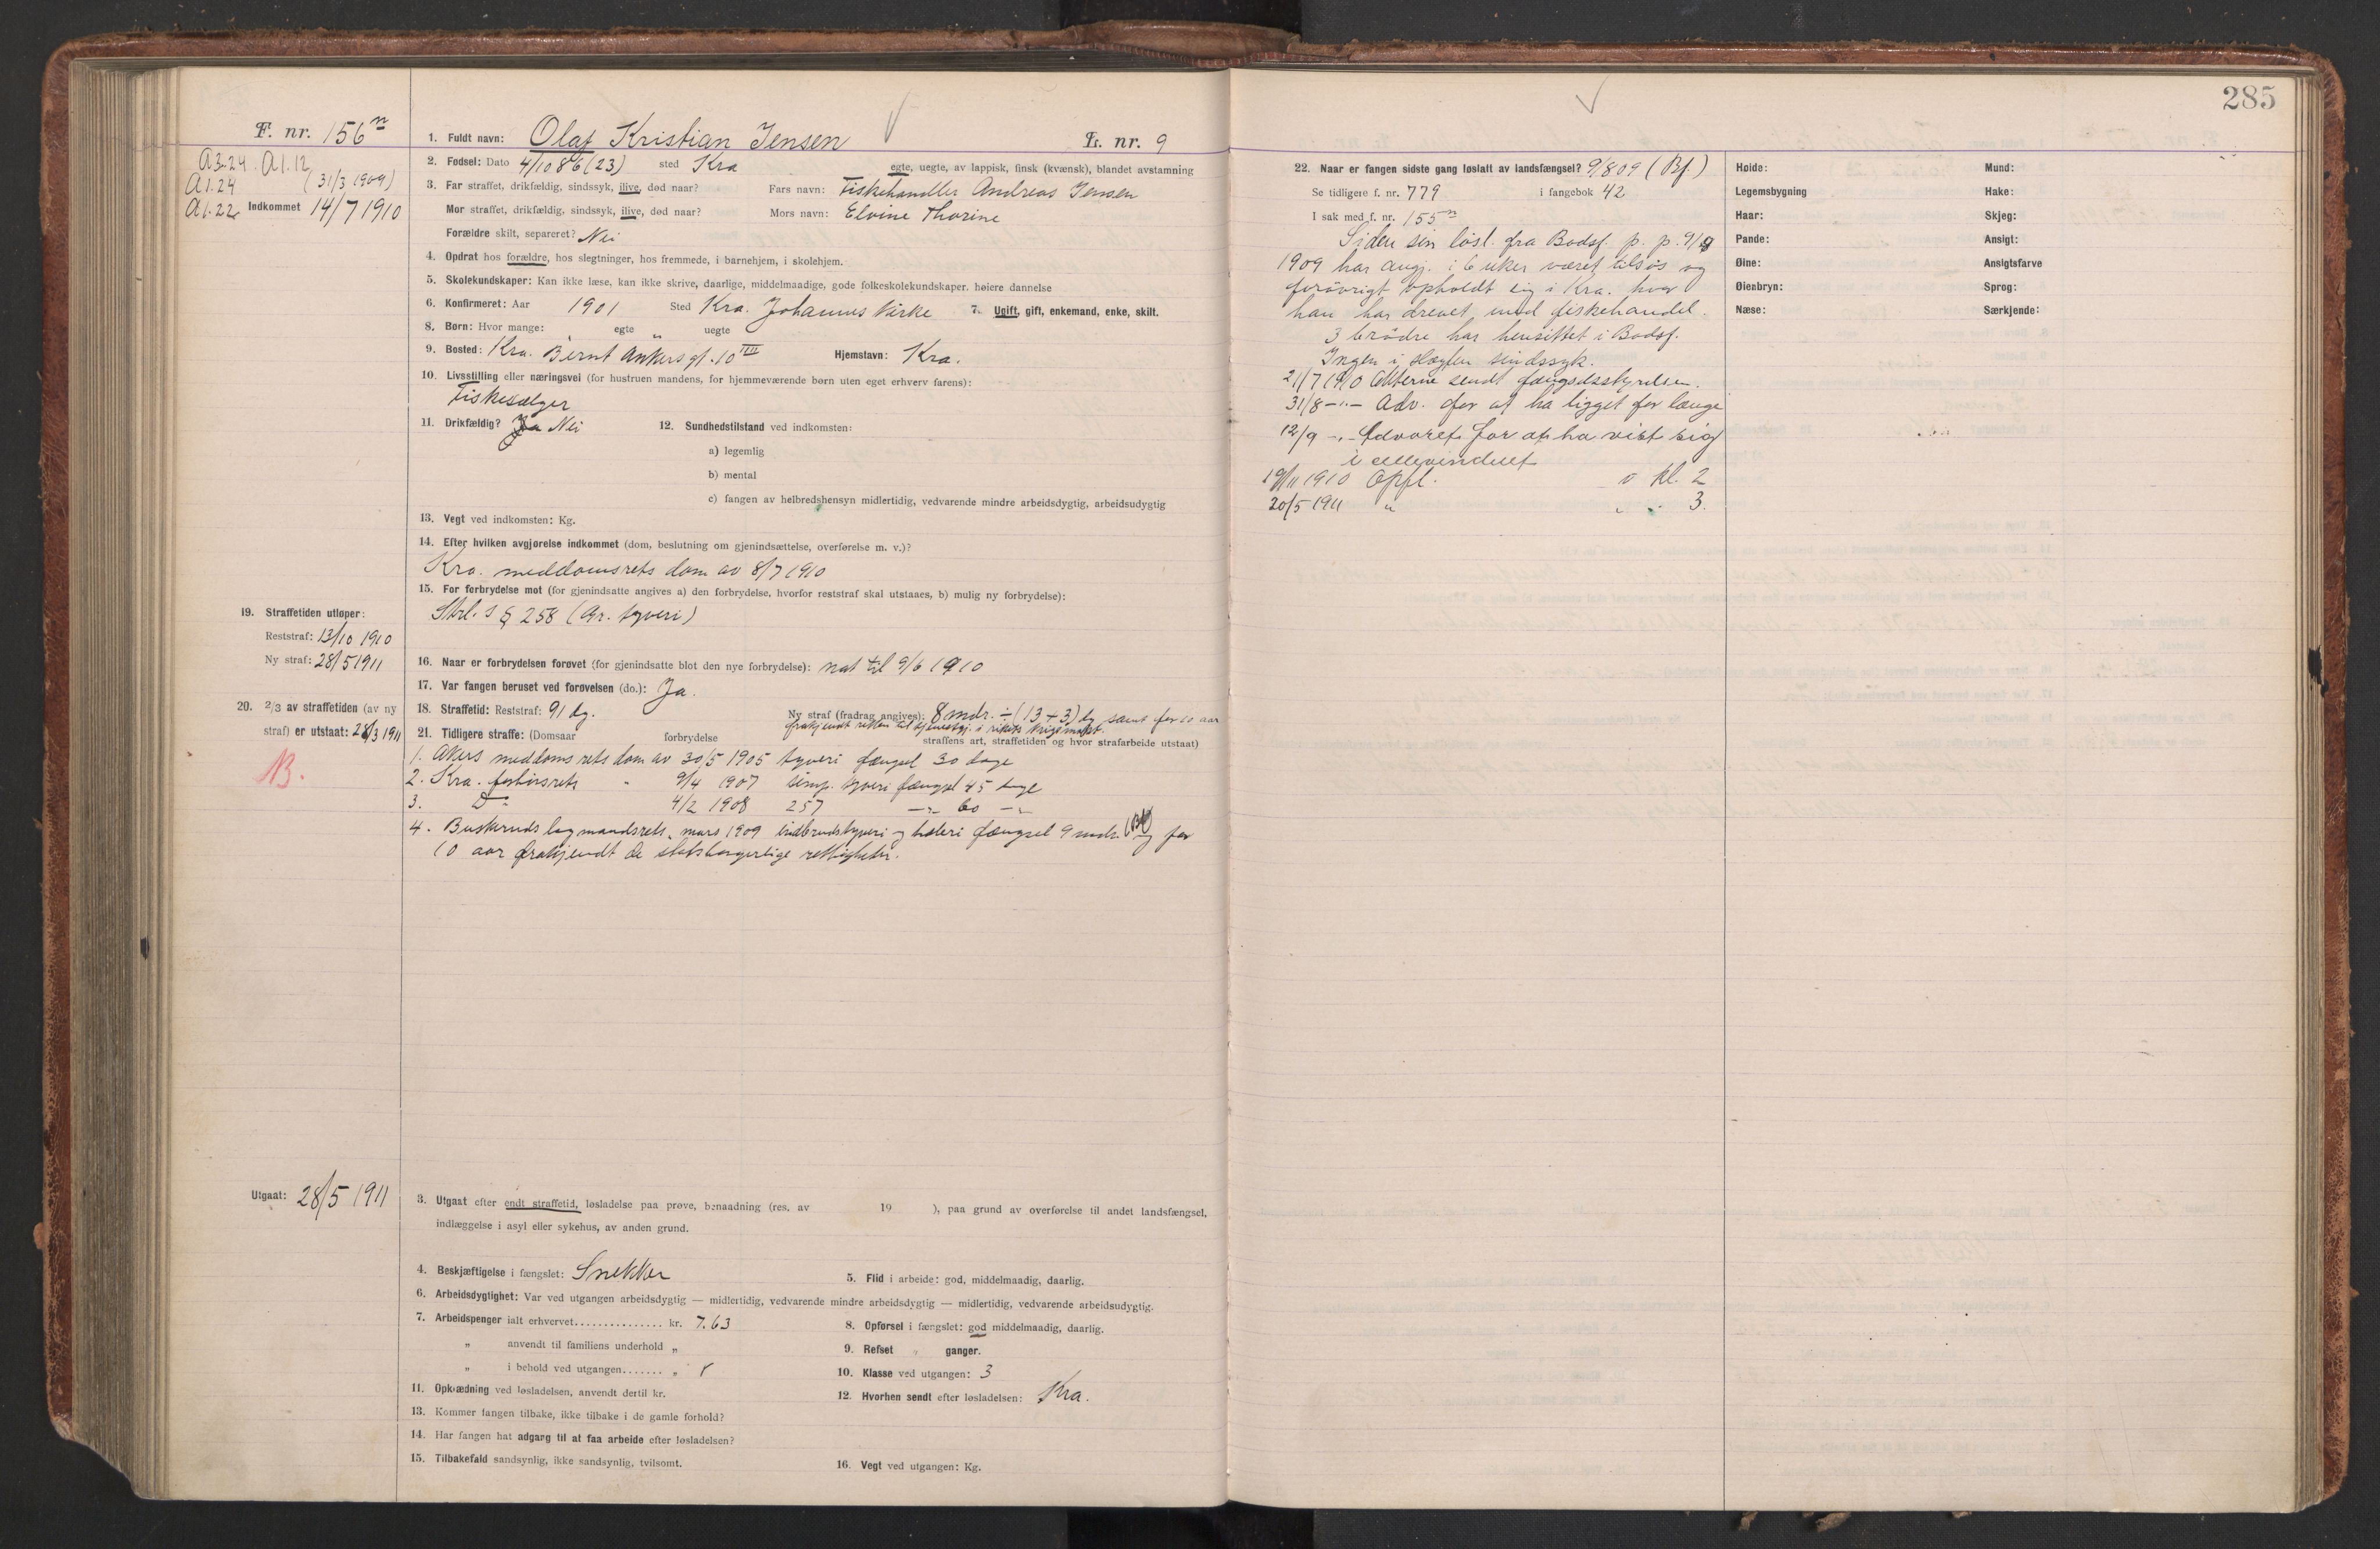 285
F. nr. 156n
A3.24. A1.12
A1.24 (31/3 1909)
A1.22 Indkommet 14/7 1910
1. Fuldt navn: Olaf Kristian Jensen L. nr. 9
2. Fødsel: Dato 4/10 86 (23) sted Kra egte, uegte, av lappisk, finsk (kvænsk), blandet avstamning
3. Far straffet, drikfældig, sindssyk, ilive, død naar? Fars navn: Fiskehandler Andreas Jensen
Mor straffet, drikfældig, sindssyk, ilive, død naar? Mors navn: Elvine Thorine
Forældre skilt, separeret? Nei
4. Opdrat hos forældre, hos slegtninger, hos fremmede, i barnehjem, i skolehjem.
5. Skolekundskaper: Kan ikke læse, kan ikke skrive, daarlige, middelmaadige, gode folkeskolekundskaper, høiere dannelse
6. Konfirmeret: Aar 1901 Sted Kra. Johannes Kirke 7. Ugift, gift, enkemand, enke, skilt.
8. Børn: Hvor mange: egte " uegte
9. Bosted: Kra. Bernt Ankersgt. 10 III Hjemstavn: Kra.
10. Livsstilling eller næringsvei (for hustruen mandens, for hjemmeværende børn uten eget erhverv farens):
Fiskesælger
11. Drikfældig? Ja Nei 12. Sundhedstilstand ved indkomsten:
a) legemlig
b) mental
c) fangen av helbredshensyn midlertidig, vedvarende mindre arbeidsdygtig, arbeidsudygtig
13. Vegt ved indkomsten: Kg.
14. Efter hvilken avgjørelse indkommet (dom, beslutning om gjenindsættelse, overførelse m. v.)?
Kra. meddomsrets dom av 8/7 1910
15. For forbrydelse mot (for gjenindsatte angives a) den forbrydelse, hvorfor reststraf skal utstaaes, b) mulig ny forbrydelse):
Strl. s § 258 (Gr. tyveri)
19. Straffetiden utløper:
Reststraf: 13/10 1910
Ny straf: 28/5 1911
16. Naar er forbrydelsen forøvet (for gjenindsatte blot den nye forbrydelse): nat til 9/6 1910
17. Var fangen beruset ved forøvelsen (do.): Ja.
20. 2/3 av straffetiden (av ny
straf) er utstaat: 28/3 1911
B.
18. Straffetid: Reststraf: 91 dg. Ny straf (fradrag angives): 8 mdr. ÷ (13 + 3) dg samt for 10 aar
frakjendt retten til tjenestgj. i rikets krigsmakt.
21. Tidligere straffe: (Domsaar forbrydelse straffens art, straffetiden og hvor strafarbeide utstaat)
1. Akers meddomsrets dom av 30/5 1905 tyveri fængsel 30 dage
2. Kra. forhørsrets " 9/4 1907 simp. tyveri fængsel 45 dage
3. Do 4/2 1908 257 -"- 60 -"-
4. Buskeruds lagmandsrets " mars 1909 indbrudstyveri og hæleri fængsel 9 mdr. (Bf) og for
10 aar frakjendt de statsborgerlige rettigheter.
Utgaat: 28/5 1911
3. Utgaat efter endt straffetid, løsladelse paa prøve, benaadning (res. av 19 ), paa grund av overførelse til andet landsfængsel,
indlæggelse i asyl eller sykehus, av anden grund.
4. Beskjæftigelse i fængslet: Snekker 5. Flid i arbeide: god, middelmaadig, daarlig.
6. Arbeidsdygtighet: Var ved utgangen arbeidsdygtig — midlertidig, vedvarende mindre arbeidsdygtig — midlertidig, vedvarende arbeidsudygtig.
7. Arbeidspenger ialt erhvervet............... kr. 7.63 8. Opførsel i fængslet: god middelmaadig, daarlig.
" anvendt til familiens underhold " 9. Refset " ganger.
" i behold ved utgangen....... " 10. Klasse ved utgangen: 3
11. Opklædning ved løsladelsen, anvendt dertil kr. 12. Hvorhen sendt efter løsladelsen: Kra.
13. Kommer fangen tilbake, ikke tilbake i de gamle forhold?
14. Har fangen hat adgang til at faa arbeide efter løsladelsen?
15. Tilbakefald sandsynlig, ikke sandsynlig, tvilsomt. 16. Vegt ved utgangen: Kg.
22. Naar er fangen sidste gang løslatt av landsfængsel? 9/8 09 (Bf.)
Se tidligere f. nr. 779 i fangebok 42
I sak med f. nr. 155n
Siden sin løsl. fra Bodsf. p. p. 9/8
1909 har angj. i 6 uker været tilsøs og
forøvrigt opholdt sig i Kra. hvor
han har drevet med fiskehandel.
3 brødre har hensittet i Bodsf.
Ingen i slægten sindssyk.
21/7 1910 Akterne sendt fængselsstyrelsen.
31/8 -"- Adv. for at ha ligget for længe
12/9 -"- Advaret for at ha vist sig
i cellevinduet
19/11 1910 Opfl. v kl. 2
20/5 1911 " " " 3.
Høide: Mund:
Legemsbygning Hake:
Haar: Skjeg:
Pande: Ansigt:
Øine: Ansigtsfarve
Øienbryn: Sprog:
Næse: Særkjende: